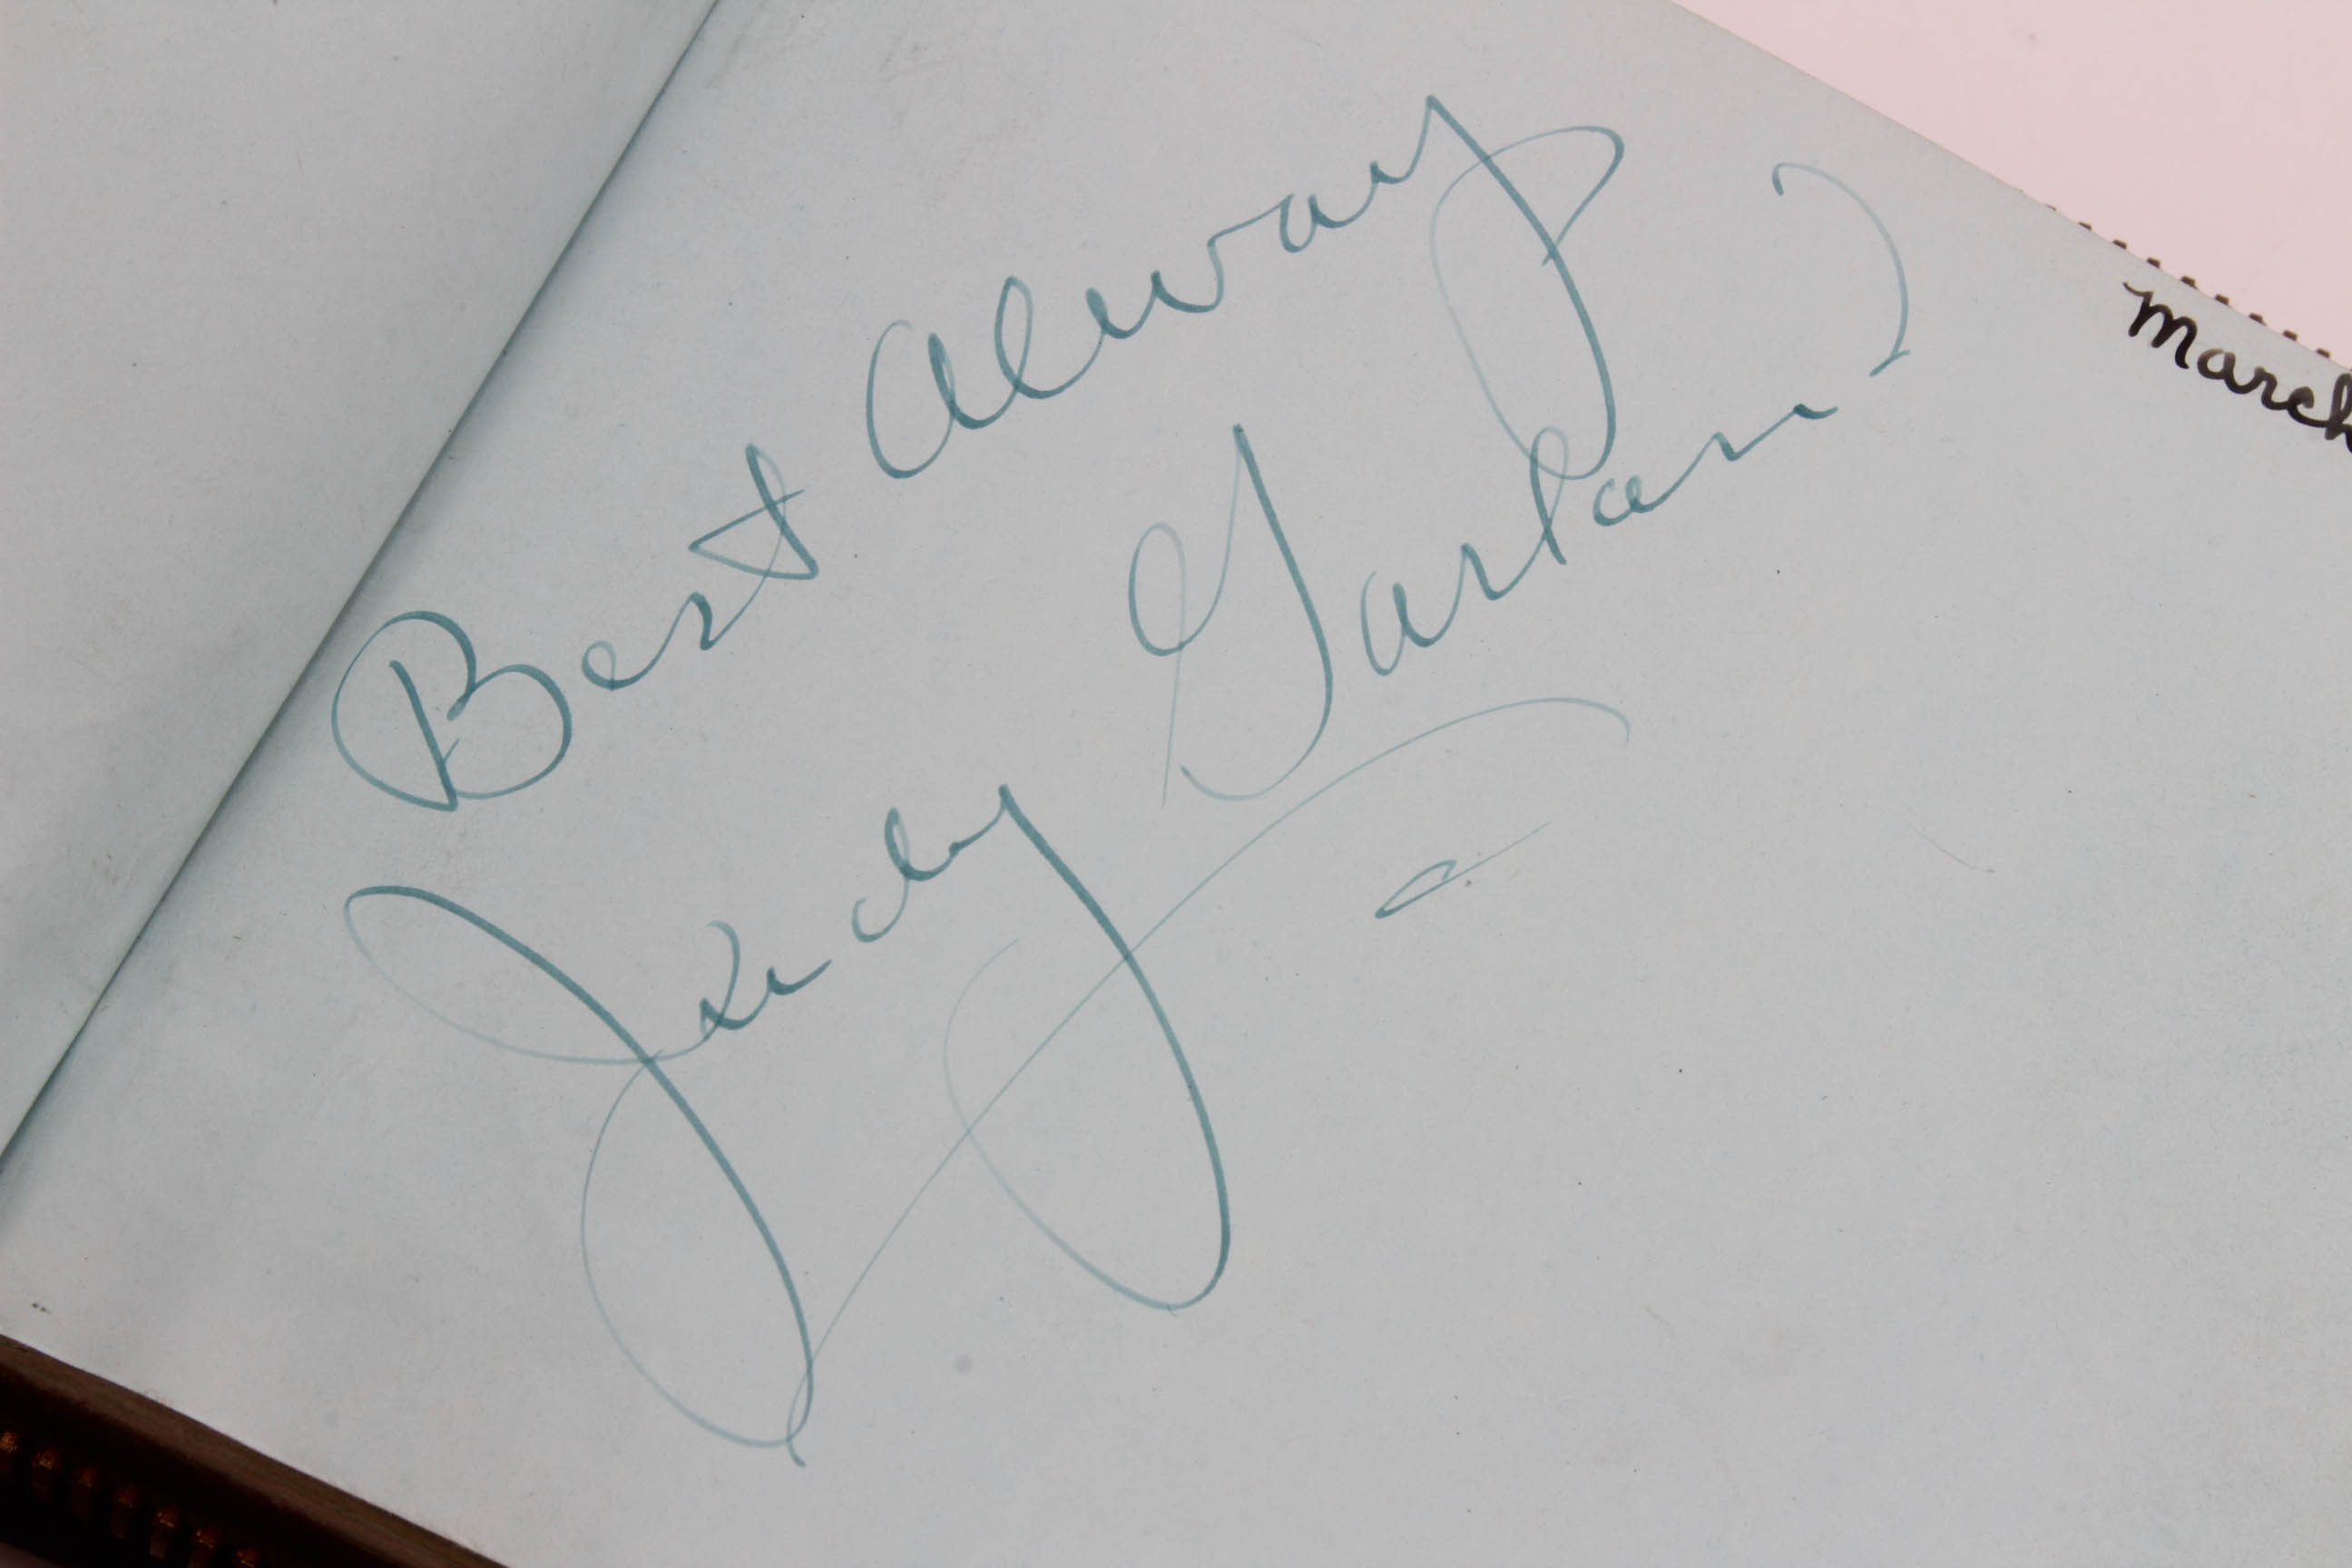 Best Always
Judy Garland
March